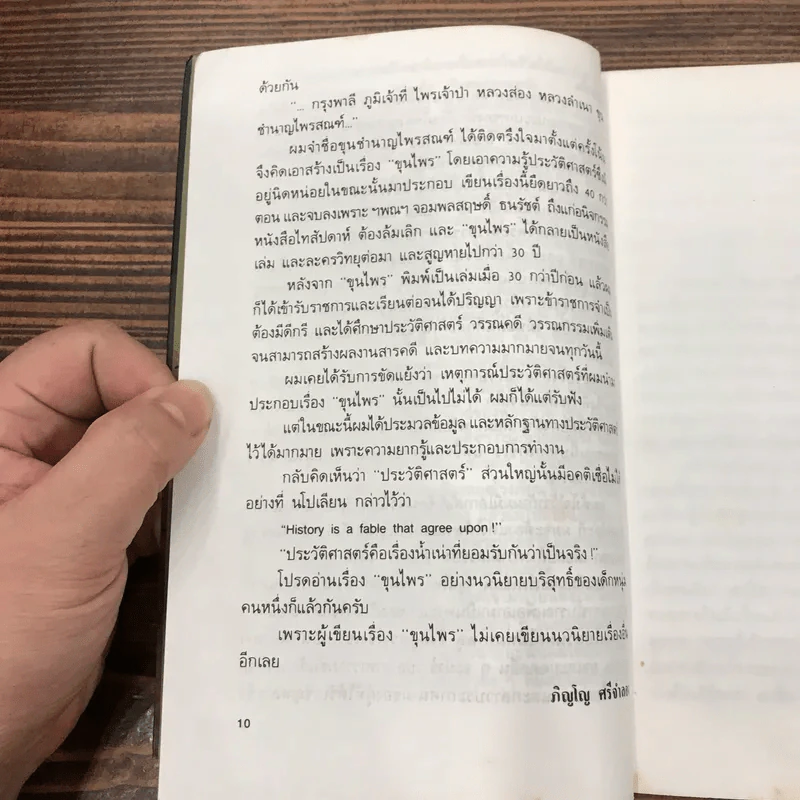 ด้วยกัน
"... กรุงพาลี ภูมิเจ้าที่ ไพรเจ้าป่า หลวงส่อง หลวงลำเนา ขุน
ชำนาญไพรสณฑ์..."
ผมจำชื่อขุนชำนาญไพรสณฑ์ ได้ติดตรึงใจมาตั้งแต่ครั้ง
จึงคิดเอาสร้างเป็นเรื่อง "ขุนไพร" โดยเอาความรู้ประวัติศาสตร์
อยู่นิดหน่อยในขณะนั้นมาประกอบ เขียนเรื่องนี้ยืดยาวถึง 40 กว่า
ตอน และจบลงเพราะ ฯพณฯ จอมพลสฤษดิ์ ธนรัชต์ ถึงแก่อนิจกรรม
หนังสือไทสัปดาห์ ต้องล้มเลิก และ "ขุนไพร" ได้กลายเป็นหนังสือ
เล่ม และละครวิทยุต่อมา และสูญหายไปกว่า 30 ปี
หลังจาก "ขุนไพร" พิมพ์เป็นเล่มเมื่อ 30 กว่าปีก่อน แล้ว
ก็ได้เข้ารับราชการและเรียนต่อจนได้ปริญญา เพราะข้าราชการจำเป็น
ต้องมีดีกรี และได้ศึกษาประวัติศาสตร์ วรรณคดี วรรณกรรมเพิ่มเติม
จนสามารถสร้างผลงานสารคดี และบทความมากมายจนทุกวันนี้
ผมเคยได้รับการขัดแย้งว่า เหตุการณ์ประวัติศาสตร์ที่ผมนำมา
ประกอบเรื่อง "ขุนไพร" นั้นเป็นไปไม่ได้ ผมก็ได้แต่รับฟัง
แต่ในขณะนี้ผมได้ประมวลข้อมูล และหลักฐานทางประวัติศาสตร์
ไว้ได้มากมาย เพราะความยากรู้และประกอบการทำงาน
กลับคิดเห็นว่า "ประวัติศาสตร์" ส่วนใหญ่นั้นมีอคติเชื่อไม่ได้
อย่างที่ นโปเลียน กล่าวไว้ว่า
"History is a fable that agree upon!"
"ประวัติศาสตร์คือเรื่องน้ำเน่าที่ยอมรับกันว่าเป็นจริง!"
โปรดอ่านเรื่อง "ขุนไพร" อย่างนวนิยายบริสุทธิ์ของเด็กหนุ่ม
คนหนึ่งก็แล้วกันครับ
เพราะผู้เขียนเรื่อง "ขุนไพร" ไม่เคยเขียนนวนิยายเรื่องอื่น
อีกเลย
ภิญโญ ศรีจำลอง
10